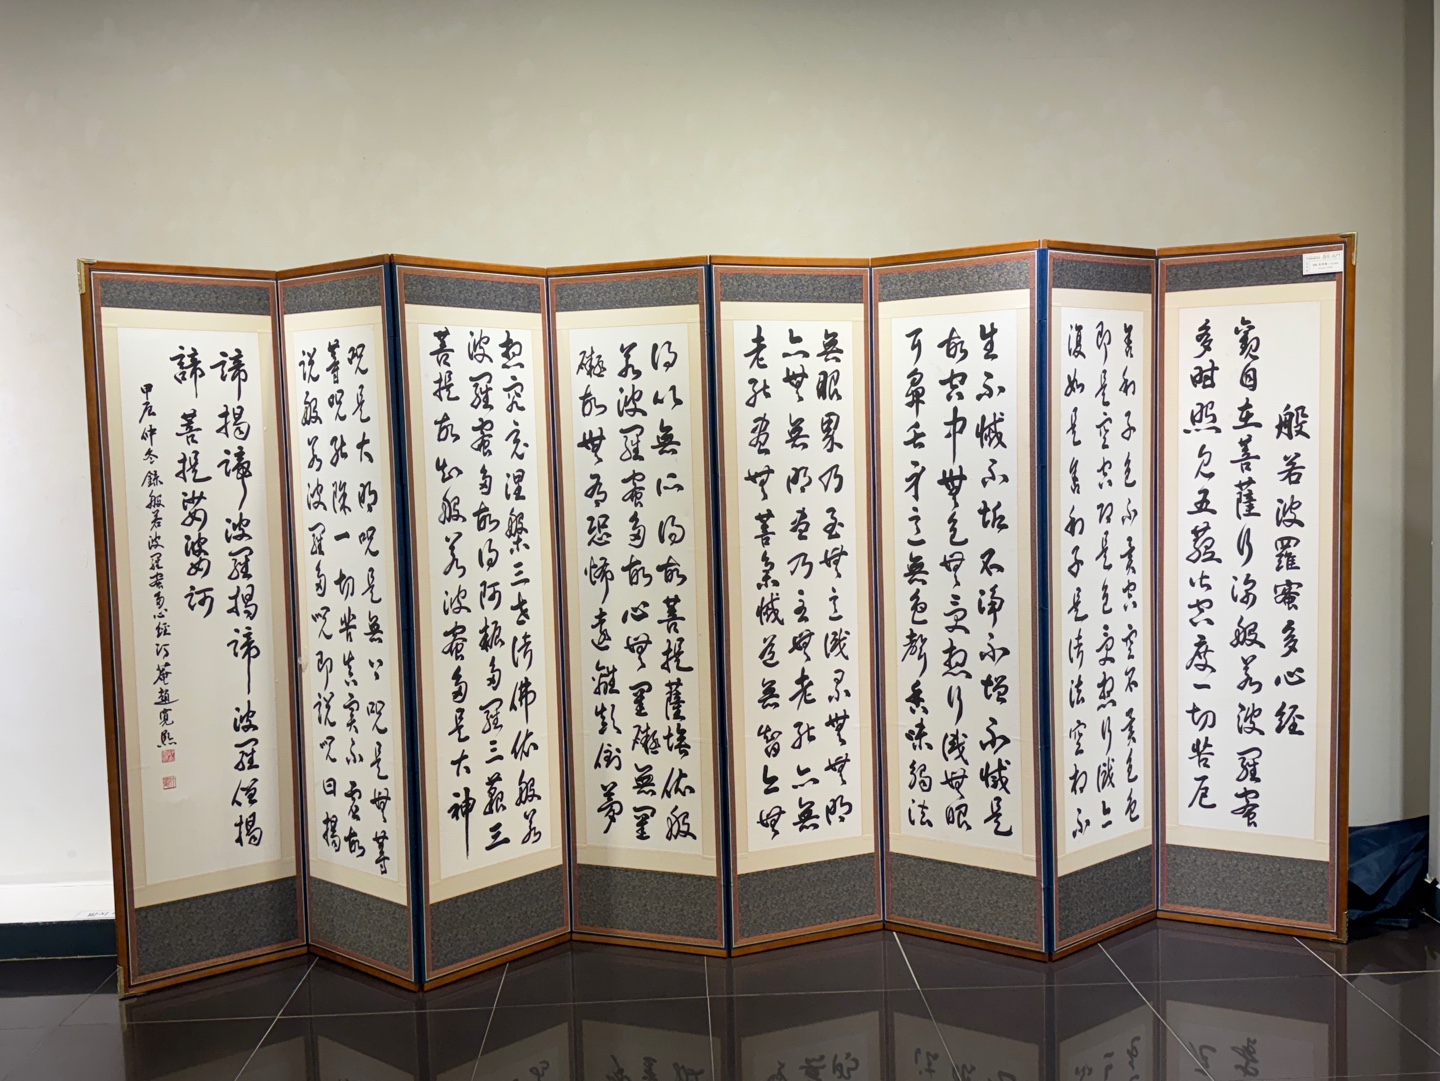 般若波羅蜜多心經
觀自在菩薩行深般若波羅蜜
多時照見五蘊皆空度一切苦厄
舍利子色不異空空不異色色
即是空空即是色受想行識亦
復如是舍利子是諸法空相不
生不滅不垢不淨不增不減是
故空中無色無受想行識無眼
耳鼻舌身意無色聲香味觸法
無眼界乃至無意識界無無明
亦無無明盡乃至無老死亦無
老死盡無苦集滅道無智亦無
得以無所得故菩提薩埵依般
若波羅蜜多故心無罣礙無罣
礙故無有恐怖遠離顛倒夢
想究竟涅槃三世諸佛依般若
波羅蜜多故得阿耨多羅三藐三
菩提故知般若波蜜多是大神
呪是大明呪是無上呪是無等
等呪能除一切苦真實不虛故
說般若波羅多呪即說呪曰揭
諦揭諦波羅揭諦波羅僧揭
諦菩提娑婆訶
甲辰仲冬錄般若波羅蜜多心經菴趙寬熙